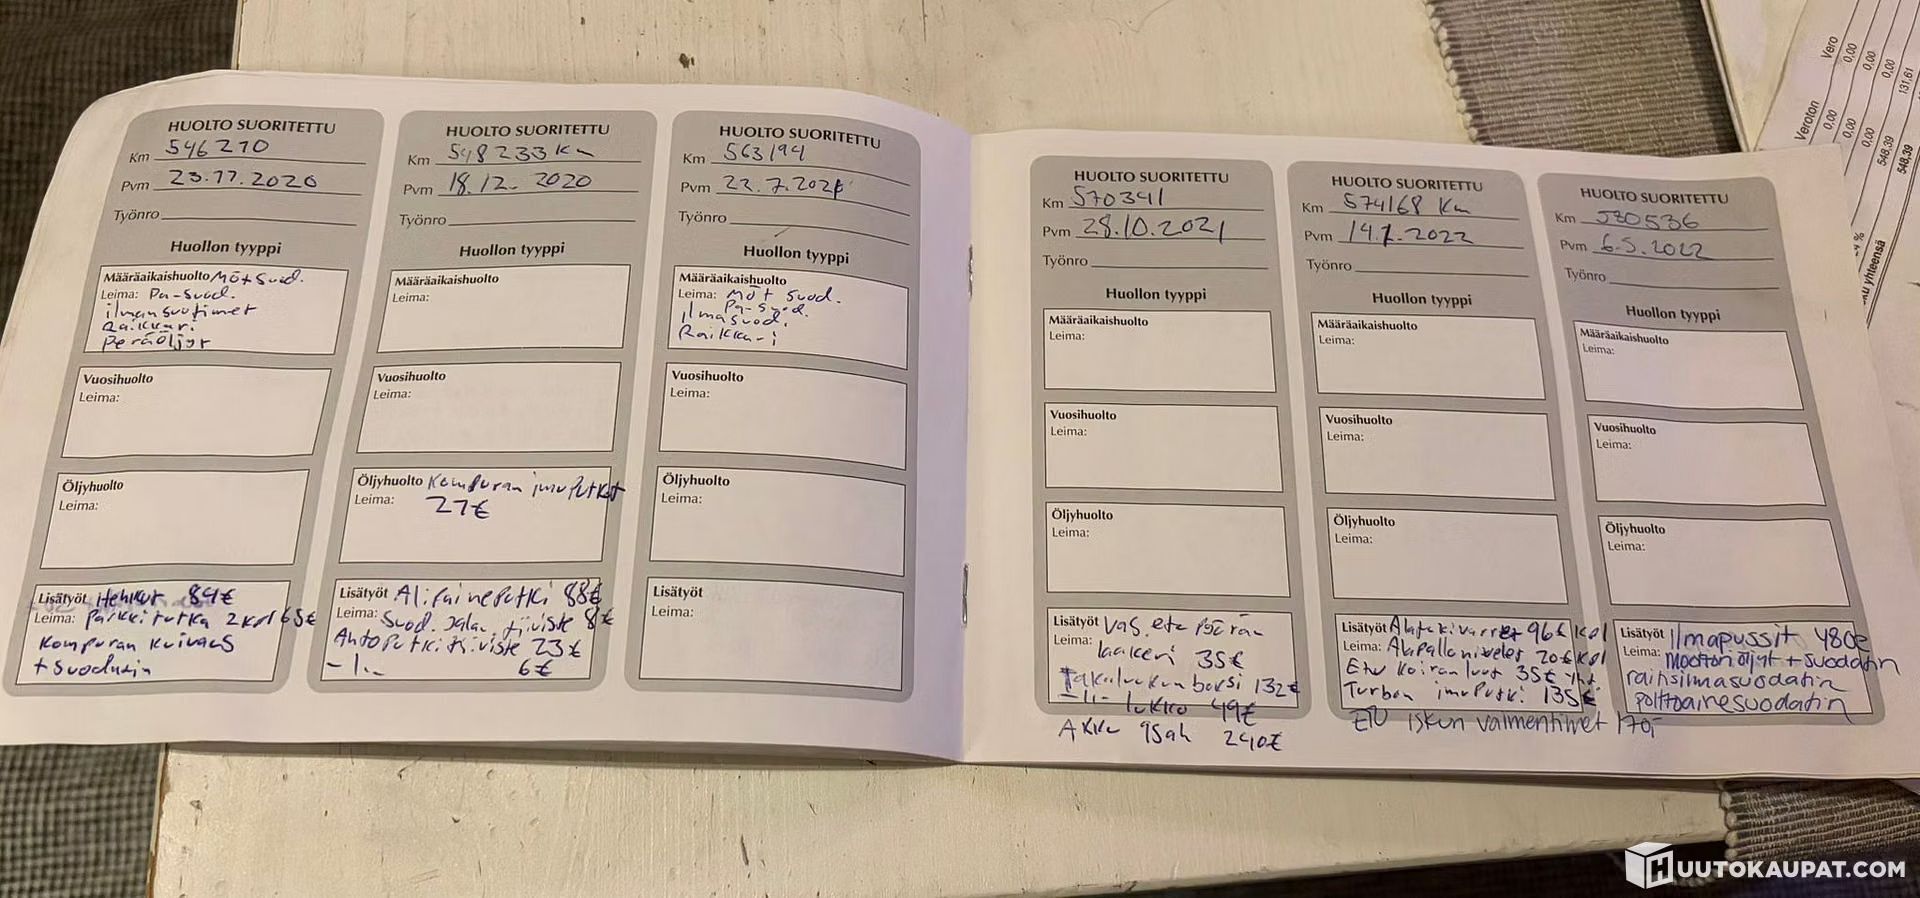 HUOLTO SUORITETTU
Km 546210
Pvm 23.11.2020
Työnro
Huollon tyyppi
Määräaikaishuolto Möt suod.
Leima: Pa-suod.
ilmansuotimet
Raikkari
Peräöljyt
Vuosihuolto
Leima:
Öljyhuolto
Leima:
Lisätyöt Hehkut 84€
Leima: Parkkitutka 2kpl 65€
Kompuran kuivaus
+ suodatin
HUOLTO SUORITETTU
Km 548233 Km
Pvm 18.12.2020
Työnro
Huollon tyyppi
Määräaikaishuolto
Leima:
Vuosihuolto
Leima:
Öljyhuolto Kompuran imuputket
Leima: 27€
Lisätyöt Alipaineputki 88€
Leima: Suod. jalan tiiviste 8€
Ahtoputki tiiviste 23€
-1.- 6€
HUOLTO SUORITETTU
Km 563194
Pvm 22.7.2021
Työnro
Huollon tyyppi
Määräaikaishuolto
Leima: Möt suod.
Pa-suod.
ilmasuod.
Raikkari
Vuosihuolto
Leima:
Öljyhuolto
Leima:
Lisätyöt
Leima:
HUOLTO SUORITETTU
Km 570341
Pvm 28.10.2021
Työnro
Huollon tyyppi
Määräaikaishuolto
Leima:
Vuosihuolto
Leima:
Öljyhuolto
Leima:
Lisätyöt Vas. etu pyörän
Leima: laakeri 35€
Takaluukun boksi 132€
-11- lukko 49€
Akku 95ah 240€
HUOLTO SUORITETTU
Km 574168 Km
Pvm 14.1.2022
Työnro
Huollon tyyppi
Määräaikaishuolto
Leima:
Vuosihuolto
Leima:
Öljyhuolto
Leima:
Lisätyöt Alatukivarret 96€ kpl
Leima: Alapallonivelet 20€ kpl
Etu koiranluut 35€ yht
Turbon imuputki 135€
ETU iskun vaimentimet 170,-
HUOLTO SUORITETTU
Km 580536
Pvm 6.5.2022
Työnro
Huollon tyyppi
Määräaikaishuolto
Leima:
Vuosihuolto
Leima:
Öljyhuolto
Leima:
Lisätyöt ilmapussit 480e
Leima: moottoriöljyt + suodatin
raitisilmasuodatin
polttoainesuodatin
Veroton
0,00
0,00
548,39
548,39
Vero
0,00
0,00
0,00
131,61
%
yhteensä
HUUTOKAUPAT.COM